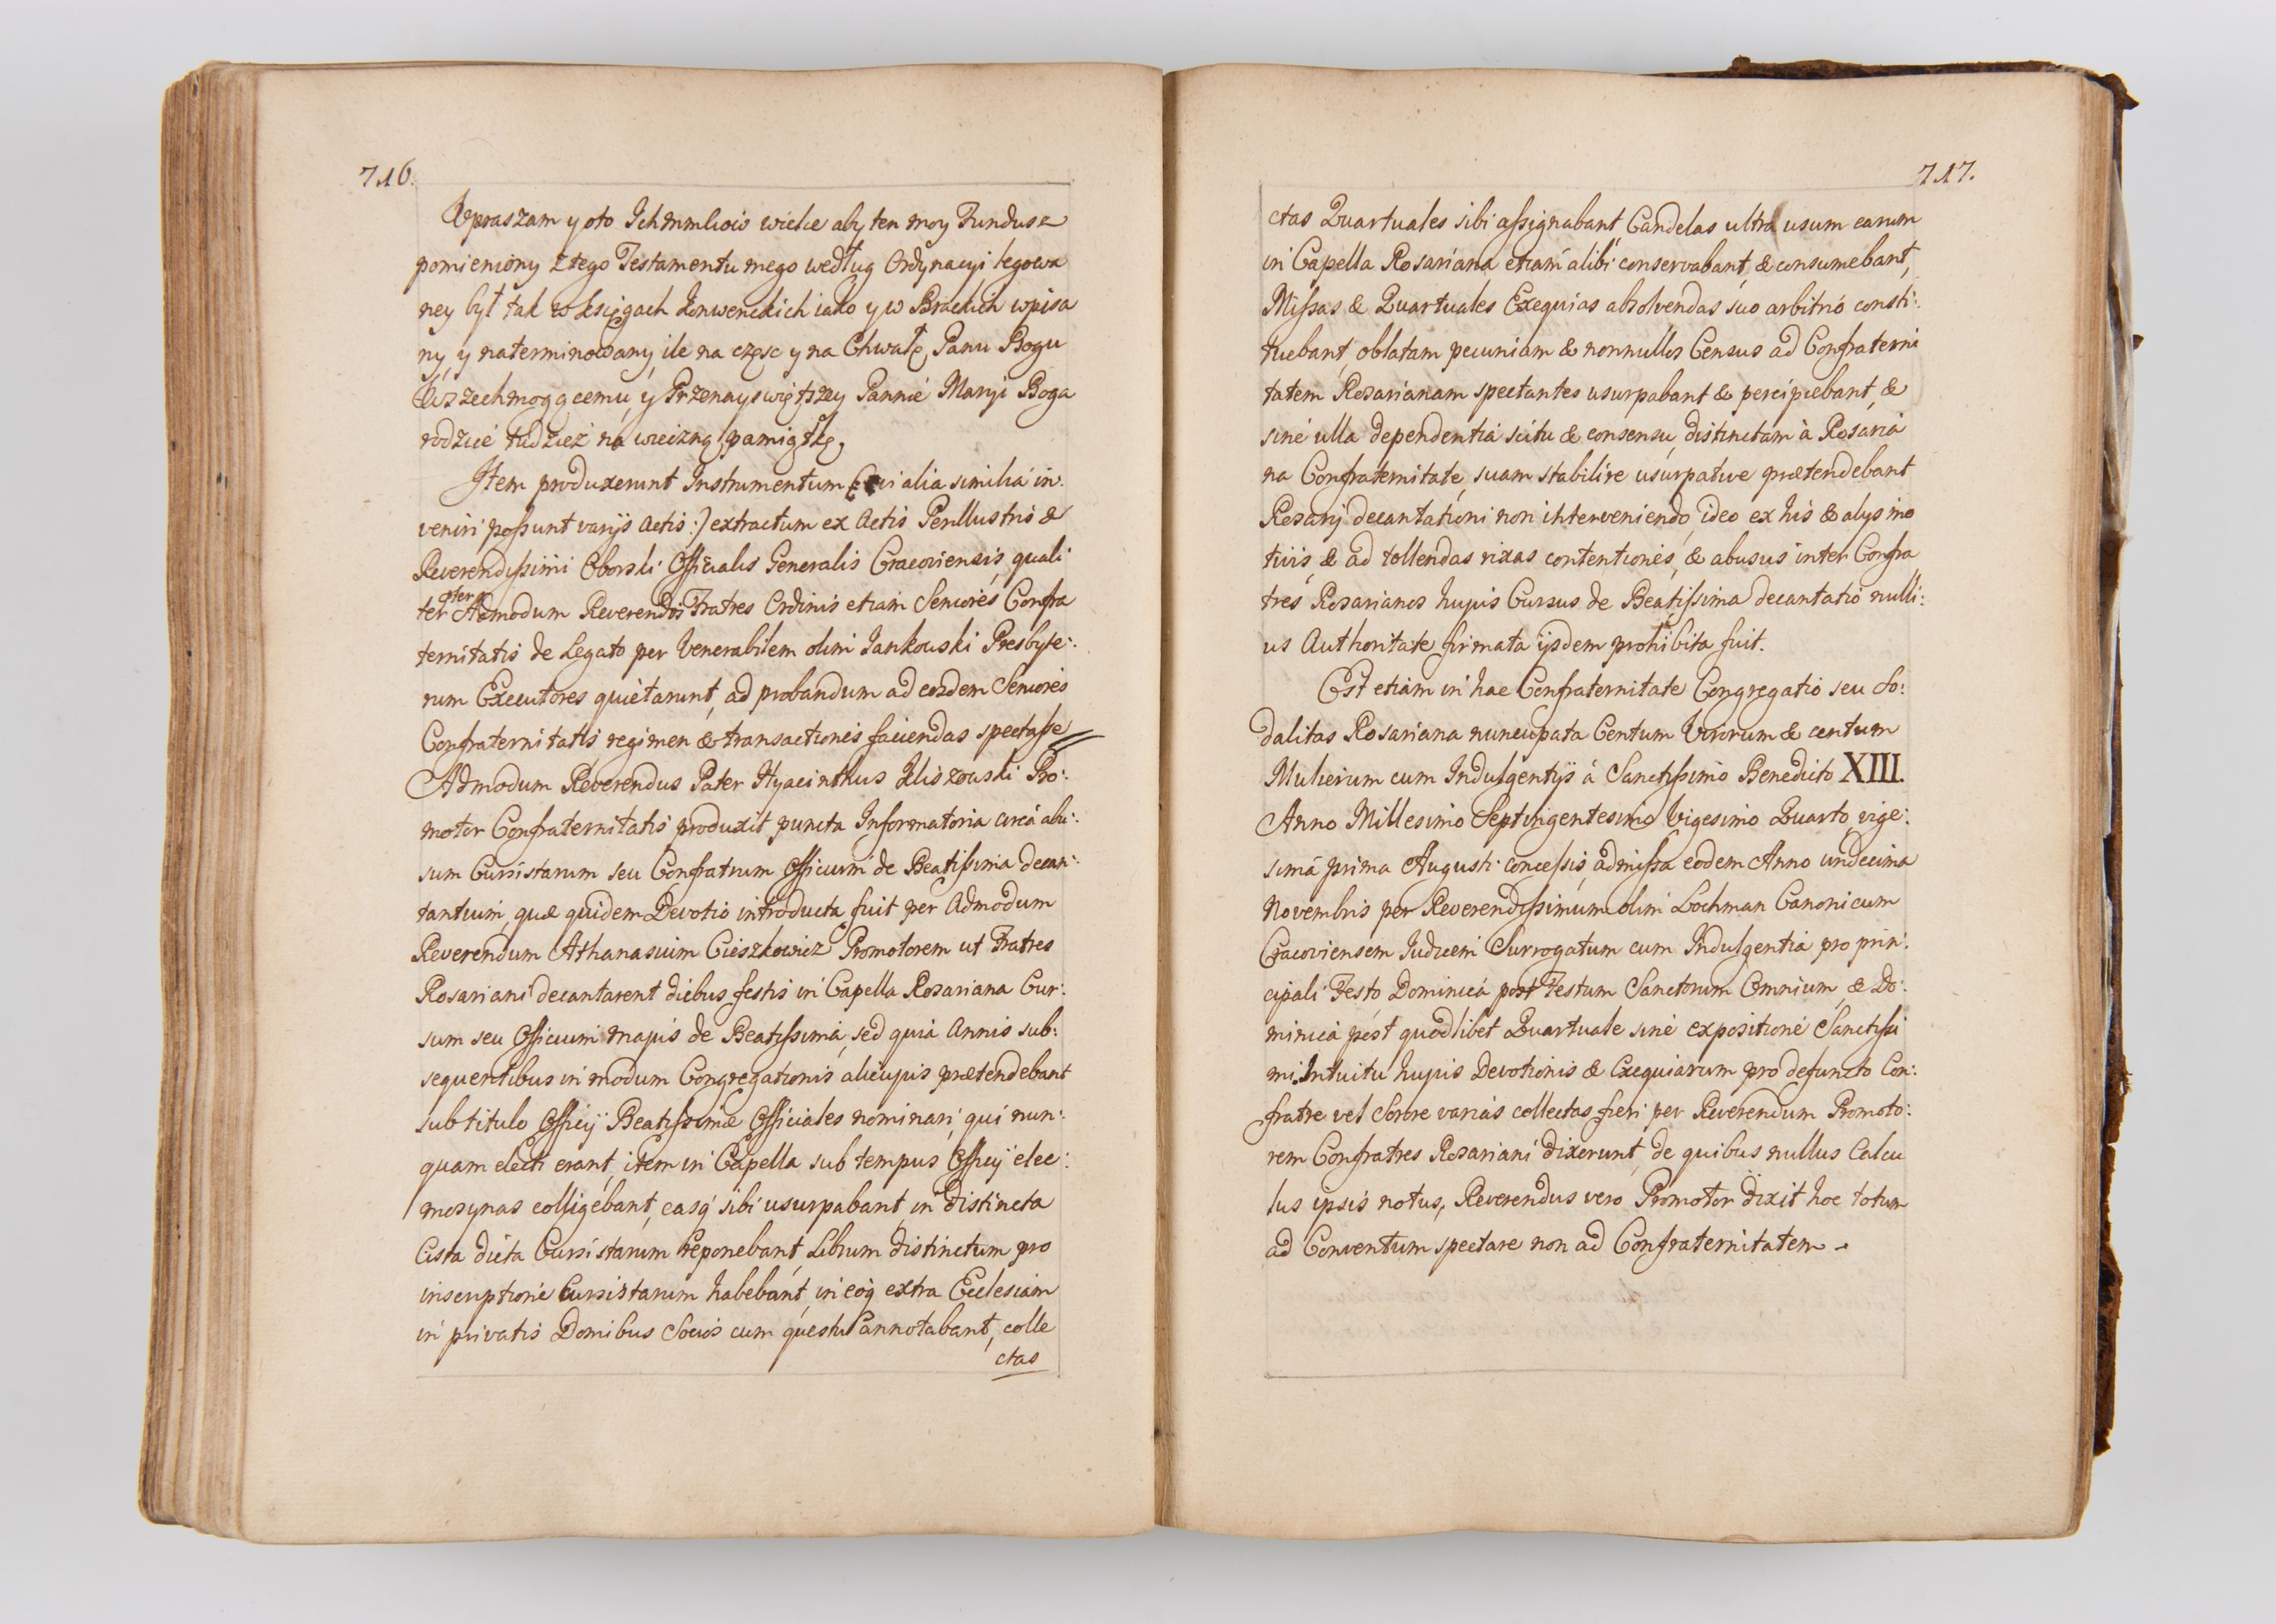 716.
Upraszam y oto Ichmmlwiów wielce aby ten moy Fundusz
pomieniony z tego Testamentu mego według Ordynacyi legowa
ney był tak w Księgach Konwenckich iako y w Brackich wpisa
ny, y naterminowany, ile na częsc y na Chwałę, Panu Bogu
Wszechmogącemu, y Przenayswiętszey Pannie Maryi Boga
rodzicé tudziez na wieczną pamiątkę,
Item produxerunt Instrumentum (: cui alia similia in:
veniri possunt varijs Actis :) extractum ex Actis Perillustris &
Reverendissimi Oborski Officialis Generalis Cracoviensis, quali
ter Admodum Reverendos Fratres Ordinis etiam Seniores Confra
ternitatis de Legato per Venerabilem olim Jankowski Presbyte:
rum Executores quietarunt, ad probandum ad eosdem Seniores
Confraternitatis regimen & transactiones faciendas spectasse
Admodum Reverendus Pater Hyacinthus Kliszowski Pro:
motor Confraternitatis produxit puncta Informatoria circa abu:
sum Cursistarum seu Confratrum Officium de Beatissima decan:
tantium, quæ quidem Devotio introducta fuit per Admodum
Reverendum Athanasium Cieszkowicz Promotorem ut Fratres
Rosariani decantarent diebus festis in Capella Rosariana Cur:
sum seu Officium majus de Beatissima, sed quia Annis sub:
sequentibus in modum Congregationis alicujus prætendebant
sub titulo Officij Beatissimæ Officiales nominari, qui nun:
quam electi erant, item in Capella sub tempus Officij elee:
mosynas colligebant, easq sibi usurpabant in distincta
Cista dicta Cursistarum reponebant, Librum distinctum pro
inscriptione Cursistarum habebant, in eoq extra Ecclesiam
in privatis Domibus Socios cum quæstu annotabant, colle
ctas
717.
ctas Quartuales sibi assignabant Candelas ultra usum earum
in Capella Rosariana etiam alibi conservabant, & consumebant,
Missas & Quartuales Exequias absolvendas suo arbitrio consti:
tuebant, oblatam pecuniam & nonnullos Census ad Confraterni
tatem Rosarianam spectantes usurpabant & percipiebant, &
sine ulla dependentia scitu & consensu, distinctam à Rosaria
na Confraternitate, suam stabilire usurpative prætendebant
Rosarij decantationi non interveniendo, ideo ex his & alijs mo
tivis, & ad tollendas rixas contentiones, & abusus inter Confra
tres Rosarianos hujus Cursus de Beatissima decantatio nulli:
us Authoritate firmata ijsdem prohibita fuit.
Est etiam in hac Confraternitate Congregatio seu So:
dalitas Rosariana nuncupata Centum Virorum & centum
Mulierum cum Indulgentijs à Sanctissimo Benedicto XIII.
Anno Millesimo Septingentesimo Vigesimo Quarto, vige:
sima prima Augusti concessis, admissa eodem Anno undecima
Novembris per Reverendissimum olim Lochman Canonicum
Cracoviensem Judicem Surrogatum cum Indulgentia pro prin:
cipali Festo Dominica post Festum Sanctorum Omnium, & Do:
minica post quodlibet Quartuale sine expositione Sanctissi
mi. Intuitu hujus Devotionis & Exequiarum pro defuncto Con:
fratre vel Sorore varias collectas fieri per Reverendum Promoto:
rem Confratres Rosariani dixerunt, de quibus nullus Calcu
lus ipsis notus, Reverendus vero Promotor dixit hoc totum
ad Conventum spectare non ad Confraternitatem